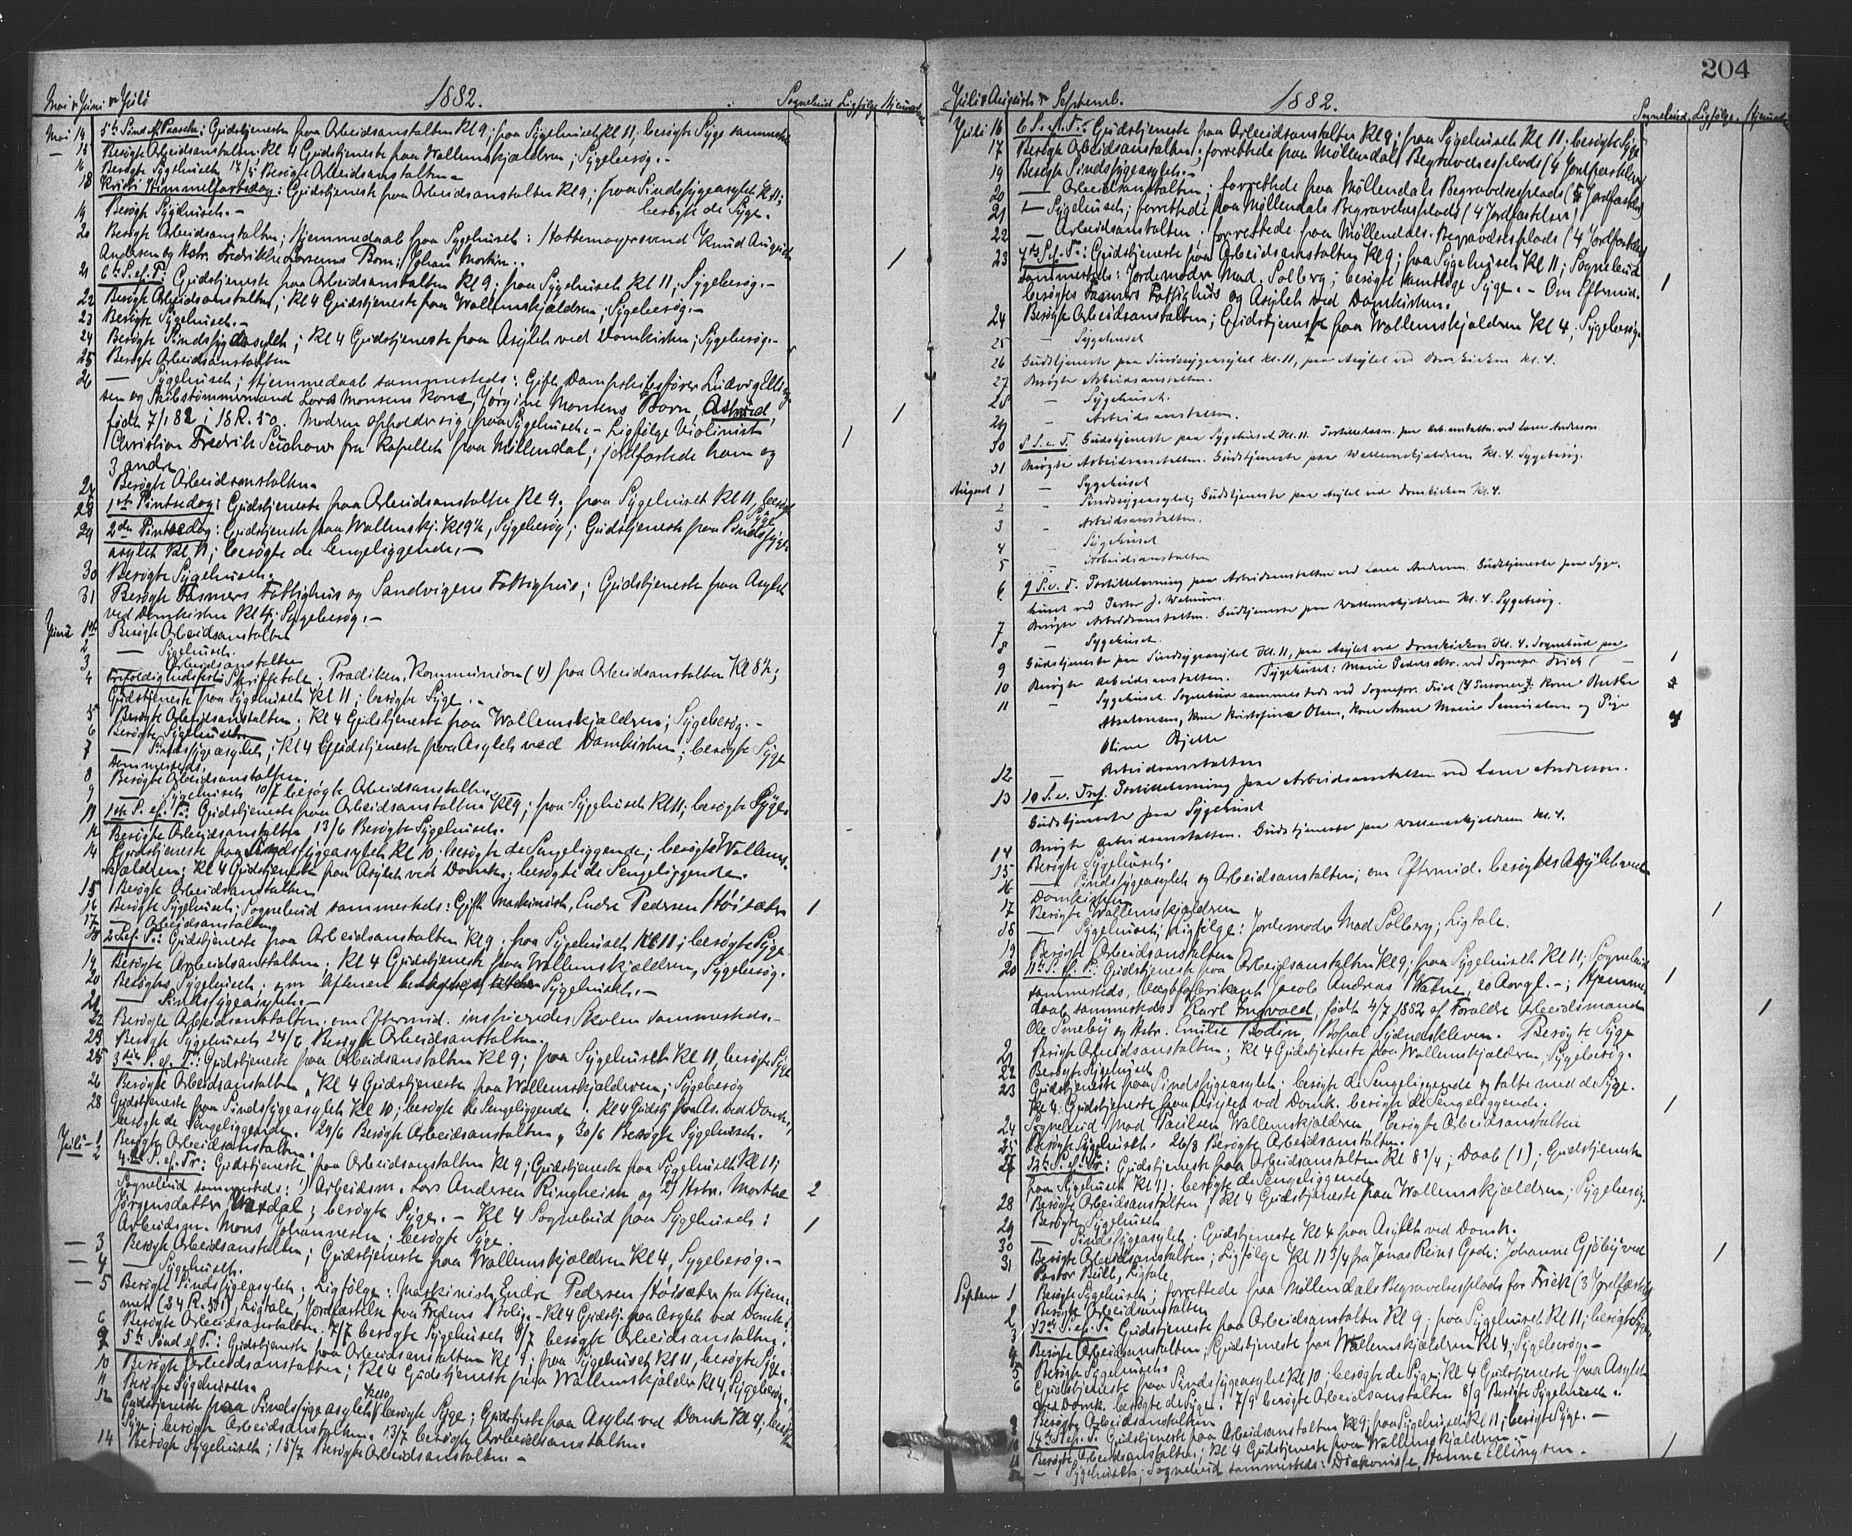 204
Mai & Juni & Juli
1882.
Sognebud Ligfølge Hjemmed
Mai 14 5te Sønd. e. Paaske: Gudstjeneste paa Arbeidsanstalten Kl 9; paa Sygehuset Kl 11; besøgte Syge sammesteds
15 Besøgte Arbeidsanstalten. Kl 4 Gudstjeneste paa Wallemskjældren; Sygebesøg. -
16 Besøgte Sygehuset. 17/5 Besøgte Arbeidsanstalten
18 Kristi Himmelfartsdag: Gudstjeneste paa Arbeidsanstalten Kl 9; paa Sindssygeasylet Kl 11;
besøgte de Syge.
19 Besøgte Sygehuset. -
20 Besøgte Arbeidsanstalten; Hjemmedaab paa Sygehuset: Hattemagersvend Knud August
Andersen og Hstr. Fredrikke Larsens Barn: Johan Martin. 1
21 6te S. ef. P.: Gudstjeneste paa Arbeidsanstalten Kl 9; paa Sygehuset Kl 11, Sygebesøg. -
22 Besøgte Arbeidsanstalten; Kl 4 Gudstjeneste paa Wallemskjældren, Sygebesøg. -
23 Besøgte Sygehuset. -
24 Besøgte Sindssygeasylet; Kl 4 Gudstjeneste paa Asylet ved Domkirken; Sygebesøg. -
25 Besøgte Arbeidsanstalten
26 — Sygehuset; Hjemmedaab sammesteds: Gift Dampskibsfører Ludvig
og Skibstømmermand Lars Monsens Kone, Jørgine Monsens Barn, Astrid,
født 7/1 82 i 18 R. 50. Modren opholder sig paa Sygehuset. - Ligfølge Violinist 1
Christian Fredrik fra Kapellet paa Møllendal; jordfæstede ham og 1
3 andre
27 Besøgte Arbeidsanstalten
28 1ste Pintsedag: Gudstjeneste paa Arbeidsanstalten Kl 9; paa Sygehuset Kl 11, besøgte
Syge
29 2den Pintsedag: Gudstjeneste paa Wallemskj. Kl 9½, Sygebesøg; Gudstjeneste paa Sindssyge-
asylet Kl 11; besøgte de Sengeliggende. -
30 Besøgte Sygehuset.
31 Besøgte Fasmers Fattighus og Sandvigens Fattighus; Gudstjeneste paa Asylet
ved Domkirken Kl 4; Sygebesøg. -
Juni 1ste Besøgte Arbeidsanstalten
2 — Sygehuset.
3 — Arbeidsanstalten
4 Trefoldighedsfest: Skriftetale, Prædiken, Kommunion (4) paa Arbeidsanstalten Kl 8½;
Gudstjeneste paa Sygehuset Kl 11; besøgte Syge. -
5 Besøgte Arbeidsanstalten; Kl 4 Gudstjeneste paa Wallemskjældren; Sygebesøg. -
6 Besøgte Sygehuset
7 — Sindssygeasylet; Kl 4 Gudstjeneste paa Asylet ved Domkirken; besøgte Syge
sammesteds.
8 Besøgte Arbeidsanstalten.
9 — Sygehuset 10/7 besøgte Arbeidsanstalten
11 1ste S. ef. Tr.: Gudstjeneste paa Arbeidsanstalten Kl 9; paa Sygehuset Kl 11; besøgte Syge
12 Besøgte Arbeidsanstalten 13/6 Besøgte Sygehuset.
14 Gudstjeneste paa Sindssygeasylet Kl 10; besøgte de Sengeliggende; besøgte Wallems-
kjældren; Kl 4 Gudstjeneste paa Asylet ved Domk.; besøgte de Sengeliggende.
15 Besøgte Arbeidsanstalten
16 Besøgte Sygehuset; Sognebud sammesteds: Gift Maskinist, Endre Pedersen Høisæter 1
17 — Arbeidsanstalten
18 2. S. ef. Tr.: Gudstjeneste paa Arbeidsanstalten Kl 9; paa Sygehuset Kl 11; besøgte Syge
19 Besøgte Arbeidsanstalten. Kl 4 Gudstjeneste paa Wallemskjældren, Sygebesøg.
20 Besøgte Sygehuset; om Aftenen Sygehuset. -
21 — Sindssygeasylet. -
22 Besøgte Arbeidsanstalten; om Eftermid. inspiceredes Skolen sammesteds. -
23 Besøgte Sygehuset 24/6 Besøgte Arbeidsanstalten.
25 3die S. ef. Tr.: Gudstjeneste paa Arbeidsanstalten Kl 9; paa Sygehuset Kl 11, besøgte Syge
26 Besøgte Arbeidsanstalten, Kl 4 Gudstjeneste paa Wallemskjældren; Sygebesøg
28 Gudstjeneste paa Sindssygeasylet Kl 10; besøgte de Sengeliggende. Kl 4 Gudstj. paa As. ved Domk.,
besøgte de Sengeliggende. 29/6 Besøgte Arbeidsanstalten, 30/6 Besøgte Sygehuset.
Juli - 1 Besøgte Arbeidsanstalten.
2 4de S. ef. Tr: Gudstjeneste paa Arbeidsanstalten Kl 9; Gudstjeneste paa Sygehuset Kl 11;
Sognebud sammesteds: 1) Arbeidsm. Lars Andersen Ringheim og 2) Hstr. Marthe 2
Jørgensdatter; besøgte Syge. - Kl 4 Sognebud paa Sygehuset:
Arbeidsm. Mons Johannesen; besøgte Syge. 1
— 3 Besøgte Arbeidsanstalten; Gudstjeneste paa Wallemskjældren Kl 4, Sygebesøg. -
— 4 — Sygehuset.
— 5 Besøgte Sindssygeasylet; Ligfølge: Maskinist Endre Pedersen Høisæter fra Hjem-
met (24 R.), Ligtale, Jordfæstelse paa Fredens Bolig. - Kl 4 Gudstj. paa Asylet ved Domk.
6 Besøgte Arbeidsanstalten. 7/7 besøgte Sygehuset 8/7 besøgte Arbeidsanstalten.
9 5te Sønd ef T.: Gudstjeneste paa Arbeidsanstalten Kl 9; paa Sygehuset Kl 11, besøgte Syge.
10 Besøgte Arbeidsanstalten; Kl 4 Gudstjeneste paa Wallemskjælder Kl 4, Sygebesøg.
11 Besøgte Sygehuset.
12 Gudstjeneste paa Sindssygeasylet Kl 10 besøgte Syge; Gudstjeneste paa Asylet ved Domk Kl 4, besøgte
Syge; besøgte Arbeidsanstalten. 13/7 besøgte Arbeidsanstalten.
14 Besøgte Sygehuset; 15/7 besøgte Arbeidsanstalten -
Juli & August & Septemb.
1882.
Sognebud, Ligfølge, Hjemmed
Juli 16 6 S. e. T.: Gudstjeneste paa Arbeidsanstalten Kl 9; paa Sygehuset Kl 11; besøgte Syge
17 Besøgte Arbeidsanstalten; forrettede paa Møllendals Begravelsesplads (4 Jordfæstelser)
19 Besøgte Sindssygeasylet. -
20 — Arbeidsanstalten; forrettede paa Møllendals Begravelsesplads (5 Jordfæstelser)
21 — Sygehuset; forrettede paa Møllendals Begravelsesplads (4 Jordfæstelser)
22 — Arbeidsanstalten; forrettede paa Møllendals Begravelsesplads (4 Jordfæstelser
23 7de S. ef. Tr.: Gudstjeneste paa Arbeidsanstalten Kl 9; paa Sygehuset Kl 11; Sognebud
sammesteds: Jordemoder Mad. Solberg; besøgte samtlige Syge. - Om Eftermid. 1
besøgtes Fasmers Fattighus og Asylet ved Domkirken.
24 Besøgte Arbeidsanstalten; Gudstjeneste paa Wallemskjældren Kl 4; Sygebesøg.
25 — Sygehuset
26 Gudstjeneste paa Sindssygeasylet Kl. 11, paa Asylet ved Domkirken Kl. 4.
27 Besøgte Arbeidsanstalten.
28 — Sygehuset.
29 — Arbeidsanstalten.
30 8 S. e. T. Gudstjeneste paa Sygehuset Kl. 11. Postillelæsn. paa Arb.anstalten ved Lærer Andersen
31 Besøgte Arbeidsanstalten. Gudstjeneste paa Wallemskjældren Kl. 4. Sygebesøg.
August 1 — Sygehuset
2 — Sindssygeasylet; Gudstjeneste paa Asylet ved Domkirken Kl 4.
3 — Arbeidsanstalten.
4 — Sygehuset
5 — Arbeidsanstalten
6 9 S. e. T. Postillelæsning paa Arbeidsanstalten ved Lærer Andersen. Gudstjeneste paa Syge-
huset ved Pastor J.
7 Besøgte Arbeidsanstalten. Gudstjeneste paa Wallemskjældren Kl. 4. Sygebesøg.
8 — Sygehuset.
9 Gudstjeneste paa Sindssygeasylet Kl. 11, paa Asylet ved Domkirken Kl. 4. Sognebud paa
10 Besøgte Arbeidsanstalten. Sygehuset: Marie Pedersdtr. ved Sognepr. Frich 1
11 — Sygehuset. Sognebud sammesteds ved Sognepr. Frich (4 Personer): Kone Berthe
Absalonsen, Kone Kristofine Olsen, Kone Anne Marie og Pige 4
Oline Bjelle
12 — Arbeidsanstalten
13 10 S. e. Tref. Postillelæsning paa Arbeidsanstalten ved Lærer Andersen.
Gudstjeneste paa Sygehuset
14 Besøgte Arbeidsanstalten. Gudstjeneste paa Wallemskjældren Kl. 4.
15 Besøgte Sygehuset.
16 — Sindssygeasylet og Arbeidsanstalten; om Eftermid. besøgtes Asylet ved
Domkirken
17 Besøgte Wallemskjældren
18 — Sygehuset; Ligfølge: Jordemoder Mad Solberg; Ligtale. 1
19 Besøgte Arbeidsanstalten
20 11te S. ef. T.: Gudstjeneste paa Arbeidsanstalten Kl 9; paa Sygehuset Kl 11; Sognebud
sammesteds, fabrikant Jacob Andreas, 20 Aar gl. -; Hjemme- 1
daab sammesteds: Karl Ingvald, født 4/7 1882 af Forældre Arbeidsmand 1
Ole og Hstr. Emilie Bodin, Bopæl Sydneskleven. Besøgte Syge
21 Besøgte Arbeidsanstalten; Kl 4 Gudstjeneste paa Wallemskjældren, Sygebesøg.
22 Besøgte Sygehuset
23 Gudstjeneste paa Sindssygeasylet; besøgte de Sengeliggende og talte med de Syge.
Kl 4: Gudstjeneste paa Asylet ved Domk. besøgte de Sengeliggende.
24 Sognebud Mad Paulsen Wallemskjældren, besøgte Arbeidsanstalten 1
25 Besøgte Sygehuset. 26/8 Besøgte Arbeidsanstalten.
27 12te S. ef. Tr: Gudstjeneste paa Arbeidsanstalten Kl 8 3/4; Daab (1); Gudstjeneste
paa Sygehuset Kl 11; besøgte de Sengeliggende
28 Besøgte Arbeidsanstalten; Kl 4 Gudstjeneste paa Wallemskjældren; Sygebesøg.
29 Besøgte Sygehuset
30 — Sindssygeasylet; Gudstjeneste Kl 4 paa Asylet ved Domk.
31 Besøgte Arbeidsanstalten; Ligfølge Kl 11 3/4 fra Jonas Reins Gade: Johanne Gjøby ved 1
Pastor Bull, Ligtale
Septem 1 Besøgte Sygehuset; forrettede paa Møllendals Begravelsesplads for Frich (3 Jordfæstelser
2 Besøgte Arbeidsanstalten
3 13de S. ef. T. Gudstjeneste paa Arbeidsanstalten Kl 9; paa Sygehuset Kl 11; besøgte Syge
4 Besøgte Arbeidsanstalten; Gudstjeneste paa Wallemskjældren Kl 4; Sygebesøg. -
5 Besøgte Sygehuset
6 Gudstjeneste paa Sindssygeasylet Kl 10; besøgte de Syge; Kl 4 Gudstjeneste paa Asylet
ved Domk. besøgte de Syge. 7/9 besøgte Arbeidsanstalten 8/9 Besøgte Sygehuset.
9 Besøgte Arbeidsanstalten
10 14de S. ef. T. Gudstjeneste paa Arbeidsanstalten Kl 9; paa Sygehuset Kl 11; besøgte Syge. -
11 Besøgte Arbeidsanstalten; Kl 4 Gudstjeneste paa Wallemskjældren -
— Sygehuset; Sognebud sammesteds: Diakonisse, Hanne Ellingsen. 1